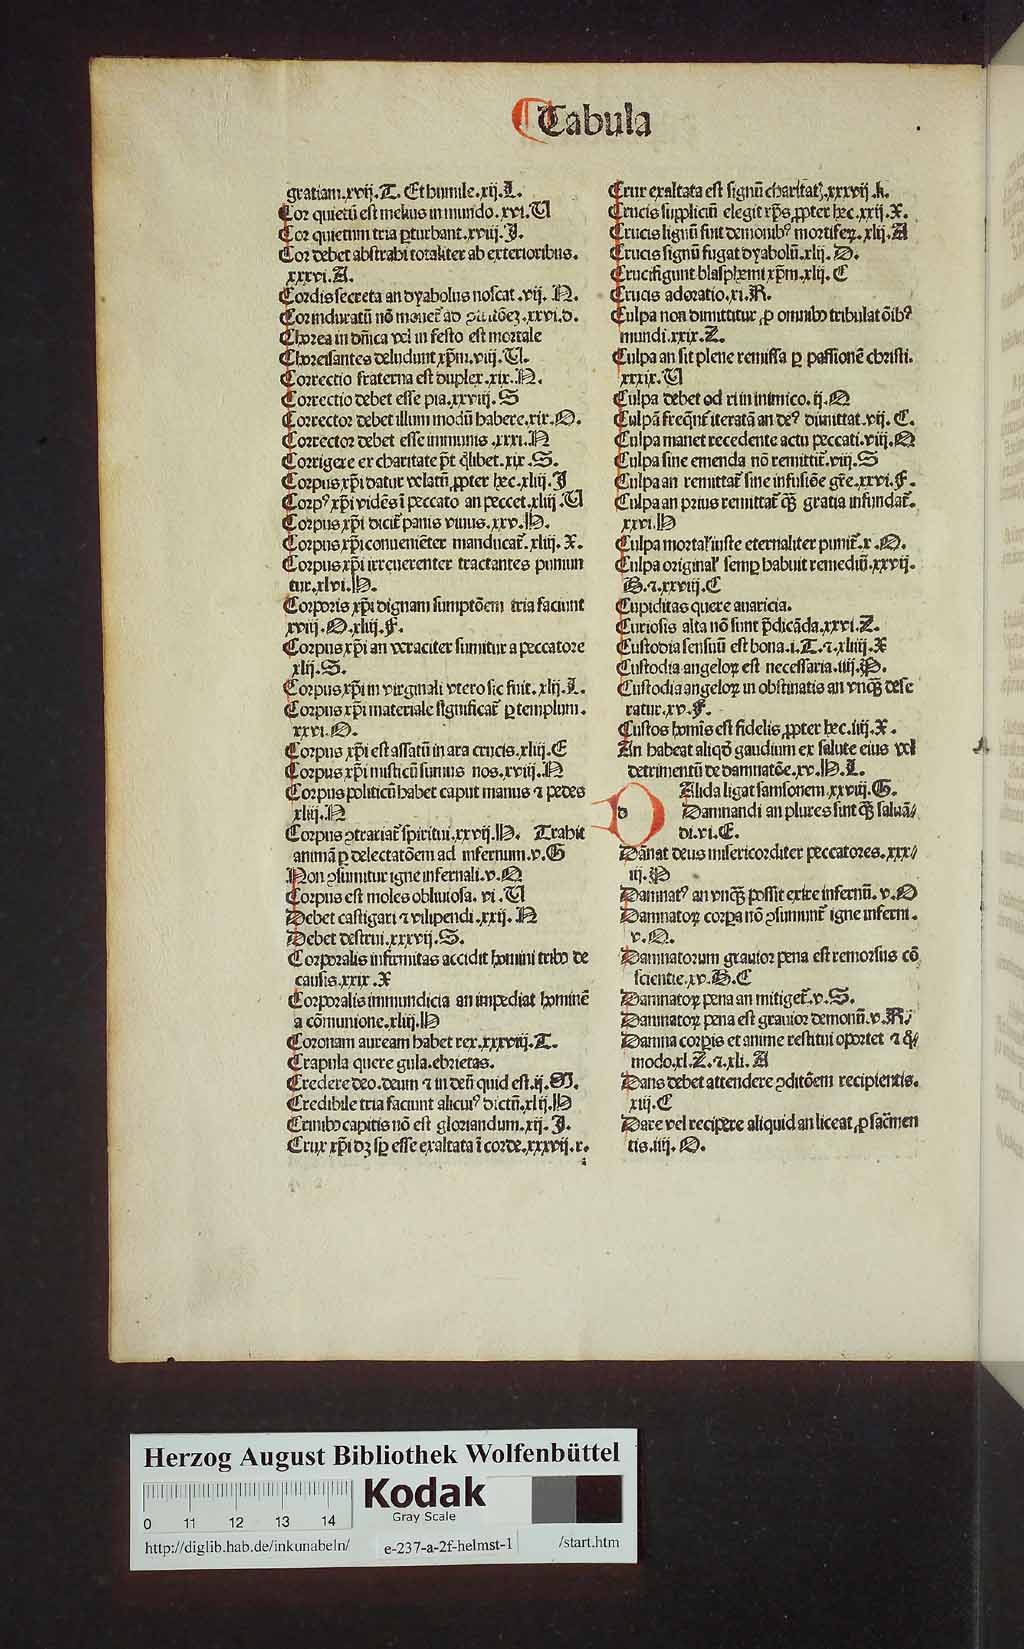 Tabula
gratiam.xvij.T. Et humile.xij.L.
Cor quietū est melius in mundo.xvi.U
Cor quietum tria ꝑturbant.xviij.J.
Cor debet abstrahi totaliter ab exterioribus.
xxxvi.A.
Cordis secreta an dyabolus noscat.vij.N.
Cor induratū nō mouet᷑ ad xxvi.d.
Chorea in dn̄ica vel in festo est mortale
Choreisantes deludunt xp̄m.viij.U.
Correctio fraterna est duplex.xix.N.
Correctio debet esse pia.xxviij.S
Corrector debet illum modū habere.xix.O.
Corrector debet esse immunis.xxxi.N
Corrigere ex charitate pōt q̄libet.xix.S.
Corpus xp̄i datur velatū ꝓpter hec.xliij.J
Corpꝰ xp̄i vidēs ī peccato an peccet.xliij.U
Corpus xp̄i dicit᷑ panis viuus.xxv.H.
Corpus xp̄i conueniēter manducat᷑.xliij.X.
Corpus xp̄i irreuerenter tractantes puniun
tur.xlvi.H.
Corporis xp̄i dignam sumptōem tria faciunt
xviij.O.xliij.F.
Corpus xp̄i an veraciter sumitur a peccatore
xlij.S.
Corpus xp̄i in virginali vtero sic fuit.xlij.L.
Corpus xp̄i materiale significat᷑ ꝑ templum.
xxvi.O.
Corpus xp̄i est assatū in ara crucis.xliij.E
Corpus xp̄i misticū sumus nos.xviij.N
Corpus politicū habet caput manus ⁊ pedes
xliij.N
Corpus ꝯtrariat᷑ spiritui.xxvij.H. Trahit
animā ꝑ delectatōem ad infernum.v.G
Non ꝯsumitur igne infernali.v.Q
Corpus est moles obliuiosa.vi.U
Debet castigari ⁊ vilipendi.xxij.N
Debet destrui.xxxvij.S.
Corporalis infirmitas accidit homini tribꝰ de
causis.xxix.X
Corporalis immundicia an impediat hominē
a cōmunione.xliij.H
Coronam auream habet rex.xxxviij.T.
Crapula quere gula.ebrietas.
Credere deo.deum ⁊ in deū quid est.ij.M.
Credibile tria faciunt alicuiꝰ dictū.xlij.H
Crinibꝰ capitis nō est gloriandum.xij.J.
Crux xp̄i dꝫ sꝑ esse exaltata ī corde.xxxvij.r.
Crux exaltata est signū charitat᷑.xxxvij.k.
Crucis suppliciū elegit xp̄s ꝓpter hec.xxij.X.
Crucis lignū fuit demonibꝰ mortifeꝝ.xlij.A
Crucis signū fugat dyabolū.xlij.D.
Crucifigunt blasphemi xp̄m.xlij.C
Crucis adoratio.xi.R.
Culpa non dimittitur ꝓ omnibꝰ tribulatōibꝰ
mundi.xxix.Z.
Culpa an sit plene remissa ꝑ passionē christi.
xxxix.U
Culpa debet odiri in inimico.ij.Q
Culpā freq̄nt᷑ iteratā an deꝰ dimittat.vij.C.
Culpa manet recedente actu peccati.viij.Q
Culpa sine emenda nō remittit᷑.viij.S
Culpa an remittat᷑ sine infusiōe gr̄e.xxvi.F.
Culpa an prius remittat᷑ qꝫ̄ gratia infundat᷑.
xxvi.H
Culpa mortal᷑ iuste eternaliter punit᷑.x.O.
Culpa original᷑ semꝑ habuit remediū.xxvij.
B.⁊.xxviij.C
Cupiditas quere auaricia.
Curiosis alta nō sunt p̄dicāda.xxvi.Z.
Custodia sensuū est bona.i.T.⁊.xliiij.X
Custodia angeloꝝ est necessaria.iiij.P.
Custodia angeloꝝ in obstinatis an vnqꝫ̄ dese
ratur.xv.F.
Custos homīs est fidelis ꝓpter hec.iiij.X.
An habeat aliqd̄ gaudium ex salute eius vel
detrimentū de damnatōe.xv.H.L.
d
Alida ligat samsonem.xxviij.G.
Damnandi an plures sint qꝫ̄ saluā⸗
di.vi.E.
Dānat deus misericorditer peccatores.xxx⸗
iij.P
Damnatꝰ an vnqꝫ̄ possit exire infernū.v.O
Damnatoꝝ corpa nō ꝯsumunt᷑ igne inferni.
v.Q.
Damnatorum grauior pena est remorsus cō
scientie.xv.B.C
Damnatoꝝ pena an mitiget᷑.v.S.
Damnatoꝝ pena est grauior demonū.v.R.
Damna corꝑis et anime restitui oportet ⁊ q̄⸗
modo.xl.Z.⁊.xli.A
Dans debet attendere ꝯditōem recipientis.
xiij.C
Dare vel recipere aliquid an liceat ꝓ sacr̄men
tis.iiij.O.
Herzog August Bibliothek Wolfenbüttel
Kodak
Gray Scale
0 11 12 13 14
http://diglib.hab.de/inkunabeln/ e-237-a-2f-helmst-1 /start.htm